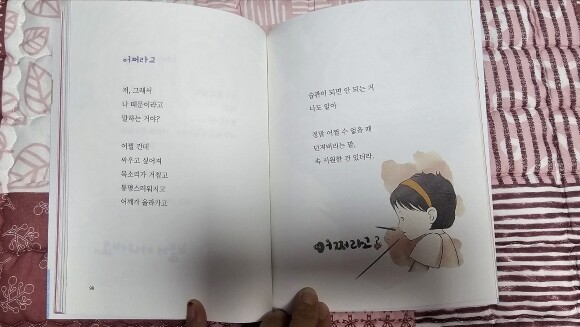 어쩌라고
저, 그래서
나 때문이라고
말하는 거야?
어쩔 건데
싸우고 싶어져
목소리가 거칠고
퉁명스러워지고
어깨가 올라가고
습관이 되면 안 되는 거
나도 알아
정말 어쩔 수 없을 때
던져버리는 말,
속 시원한 건 있더라.
어쩌라고